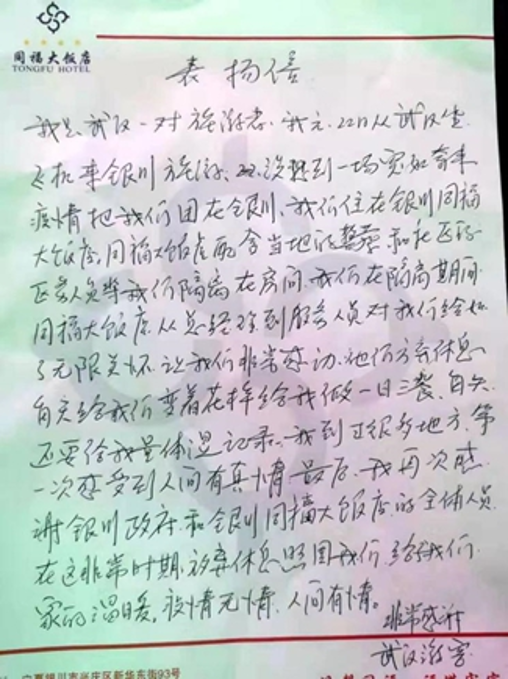 同福大饭店
TONGFU HOTEL
表扬信
我是武汉一对旅游者.我元.22日从武汉坐
飞机来银川旅游、没想到一场突如奇来
疫情把我们困在银川、我们住在银川同福
大饭店.同福大饭店配合当地的 和社区
医务人员 我们隔离在房间.我们在隔离期间
同福大饭店从总经理到服务人员对我们给于
了无限关怀.让我们非常感动.他们放弃休息
每天给我们变着花样给我做一日三餐、每天
还要给我量体温记录.我到过很多地方.第
一次感受到人间有真情.最后.我再次感
谢银川政府和银川同福大饭店的全体人员
在这非常时期.放弃休息照固我们.给我们
家的温暖,疫情无情.人间有情。
非常感谢
武汉游客
宁夏银川市兴庆区新华东街93号